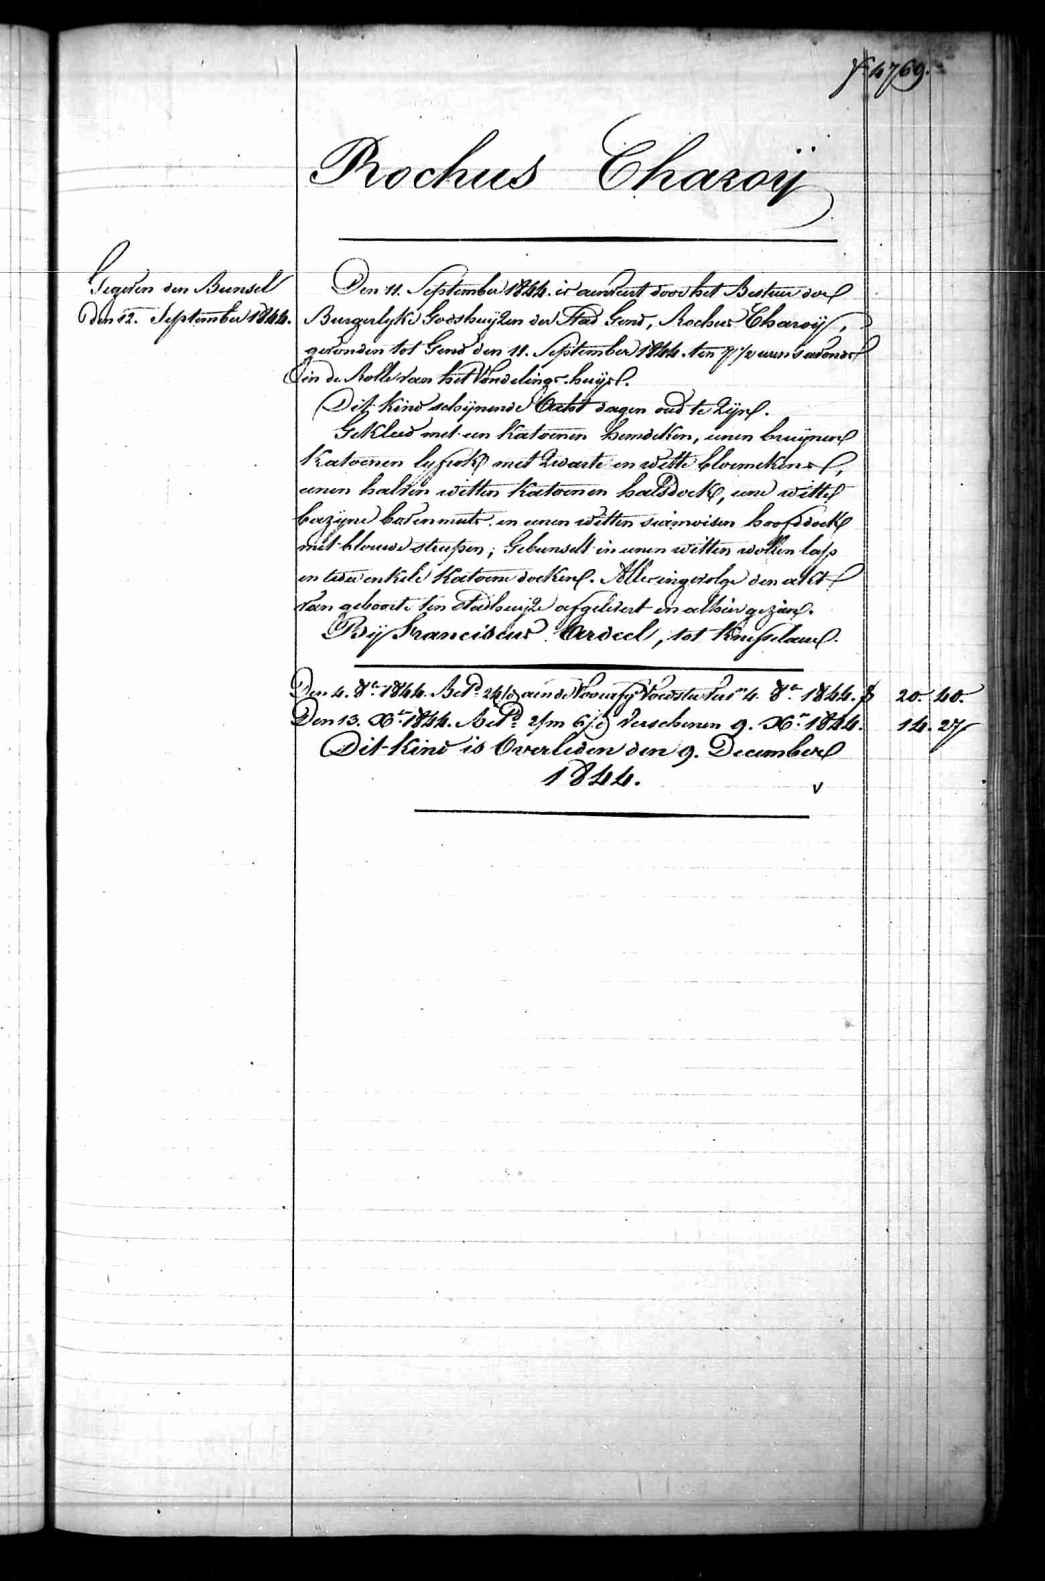 f° 4769.
Rochus Charoÿ
Gegeven den Bunsel
den 12. September 1844.
Den 11. September 1844. is aenveert door het Bestuer der
Burgerlyke Godshuijzen der Stad Gend, Rochus Charoÿ,
gevonden tot Gend den 11. September 1844. ten 7 1/2 uren s'avonds
in de Rolle van het Vondelings-huijs.
Dit kind schijnende Acht dagen oud te zijn.
Gekleed met een katoenen hemdeken, eenen bruijnen
katoenen lyfrok met zwarte en witte bloemekens,
eenen halven witten katoenen halsdoek, eene witte
bazijne bovenmuts en eenen witten siamoisen hoofddoek
met blauwe streepen; Gebunselt in eenen witten wollen lap
en twee enkele katoene doeken. Alles ingevolge den akt
van geboorte ten Stadhuijze afgelevert en alhier gezien.
Bÿ Franciscus Verdeel, tot Knesselaere.
Den 4. 8er 1844. Betd aen de Voedster 4. 8er 1844. f 20. 40.
Den 13. Xer 1844. Betd 2/m 6/d verschenen 9. Xer 1844. 14. 27
Dit kind is Overleden den 9. December
1844.
v